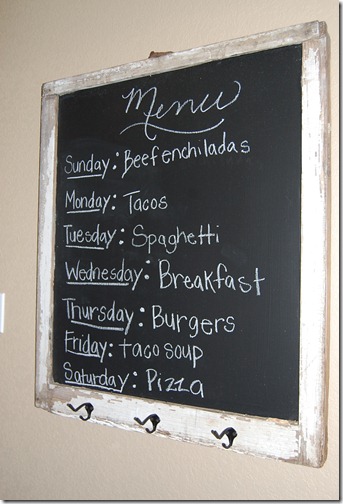 Menu
Sunday: Beef enchiladas
Monday: Tacos
Tuesday: Spaghetti
Wednesday: Breakfast
Thursday: Burgers
Friday: taco soup
Saturday: Pizza